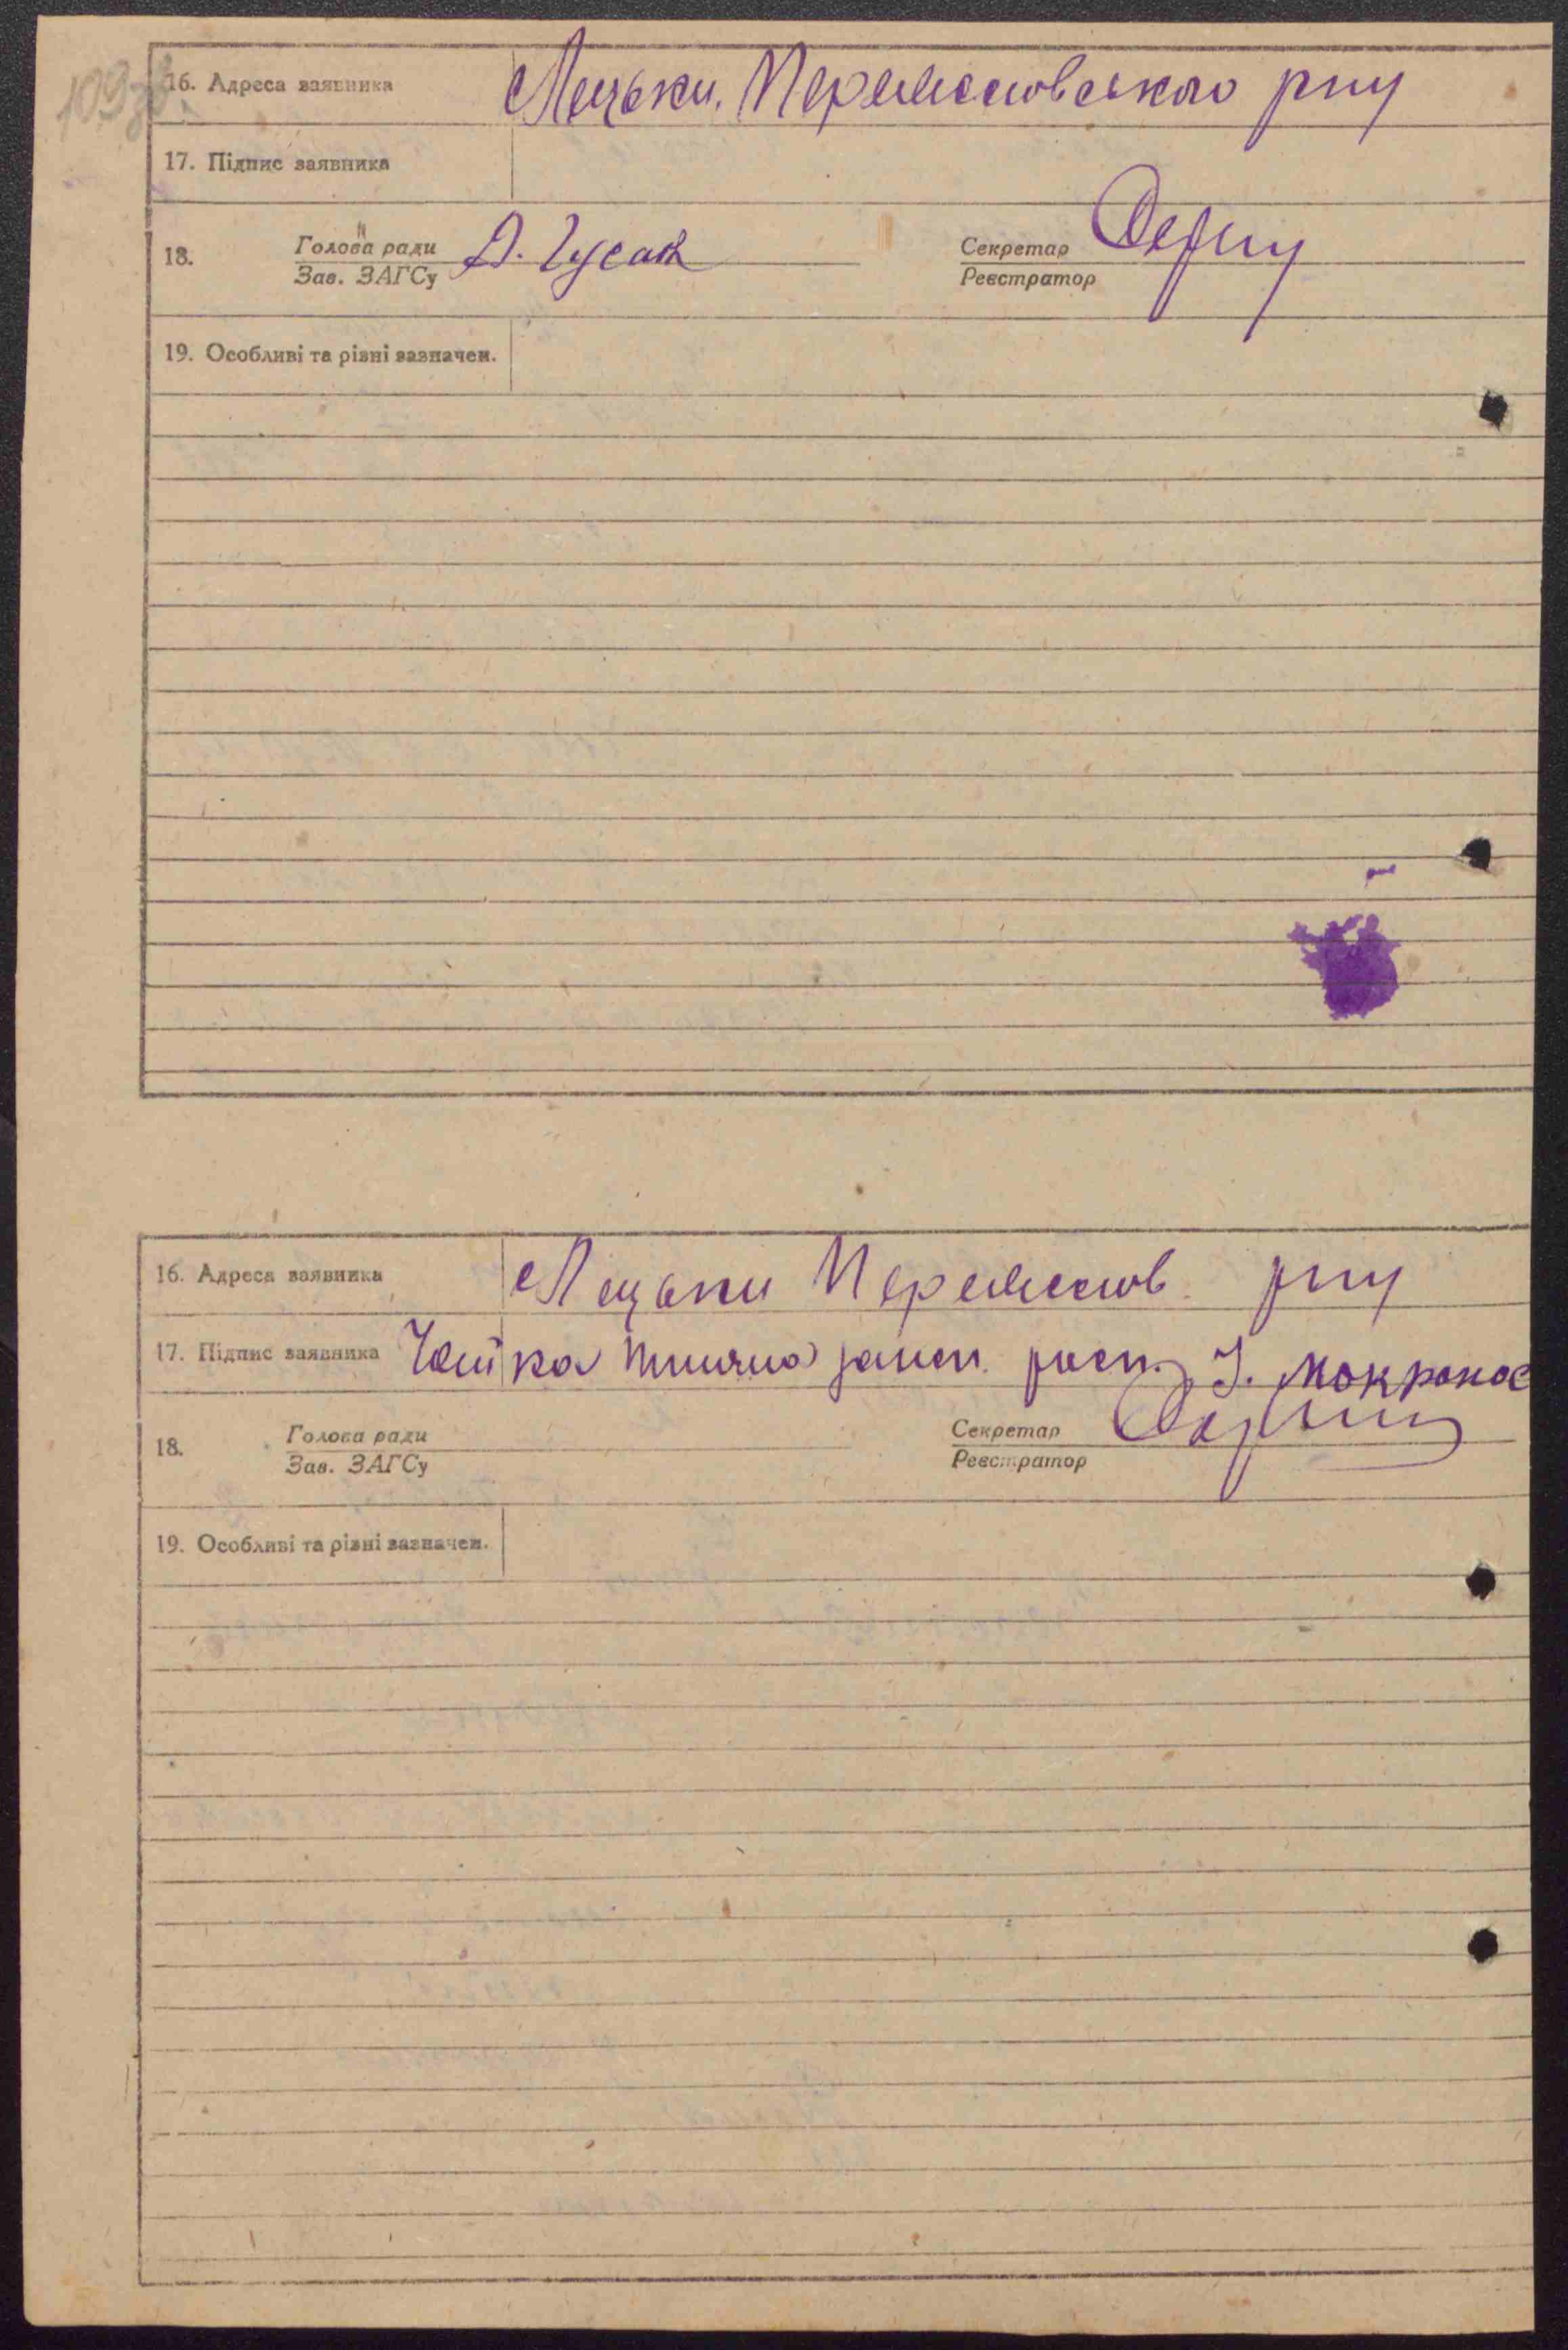 109зв.
16. Адреса заявника Лецьки, Переяславського р-ну
17. Підпис заявника
18. Голова ради Д. Гусак Секретар
Зав. ЗАГСу Реєстратор
19. Особливі та різні зазначен.
16. Адреса заявника Лецьки Переяслав. р-ну
17. Підпис заявника росп. Мокронос
18. Голова ради Секретар
Зав. ЗАГСу Реєстратор
19. Особливі та різні зазначен.